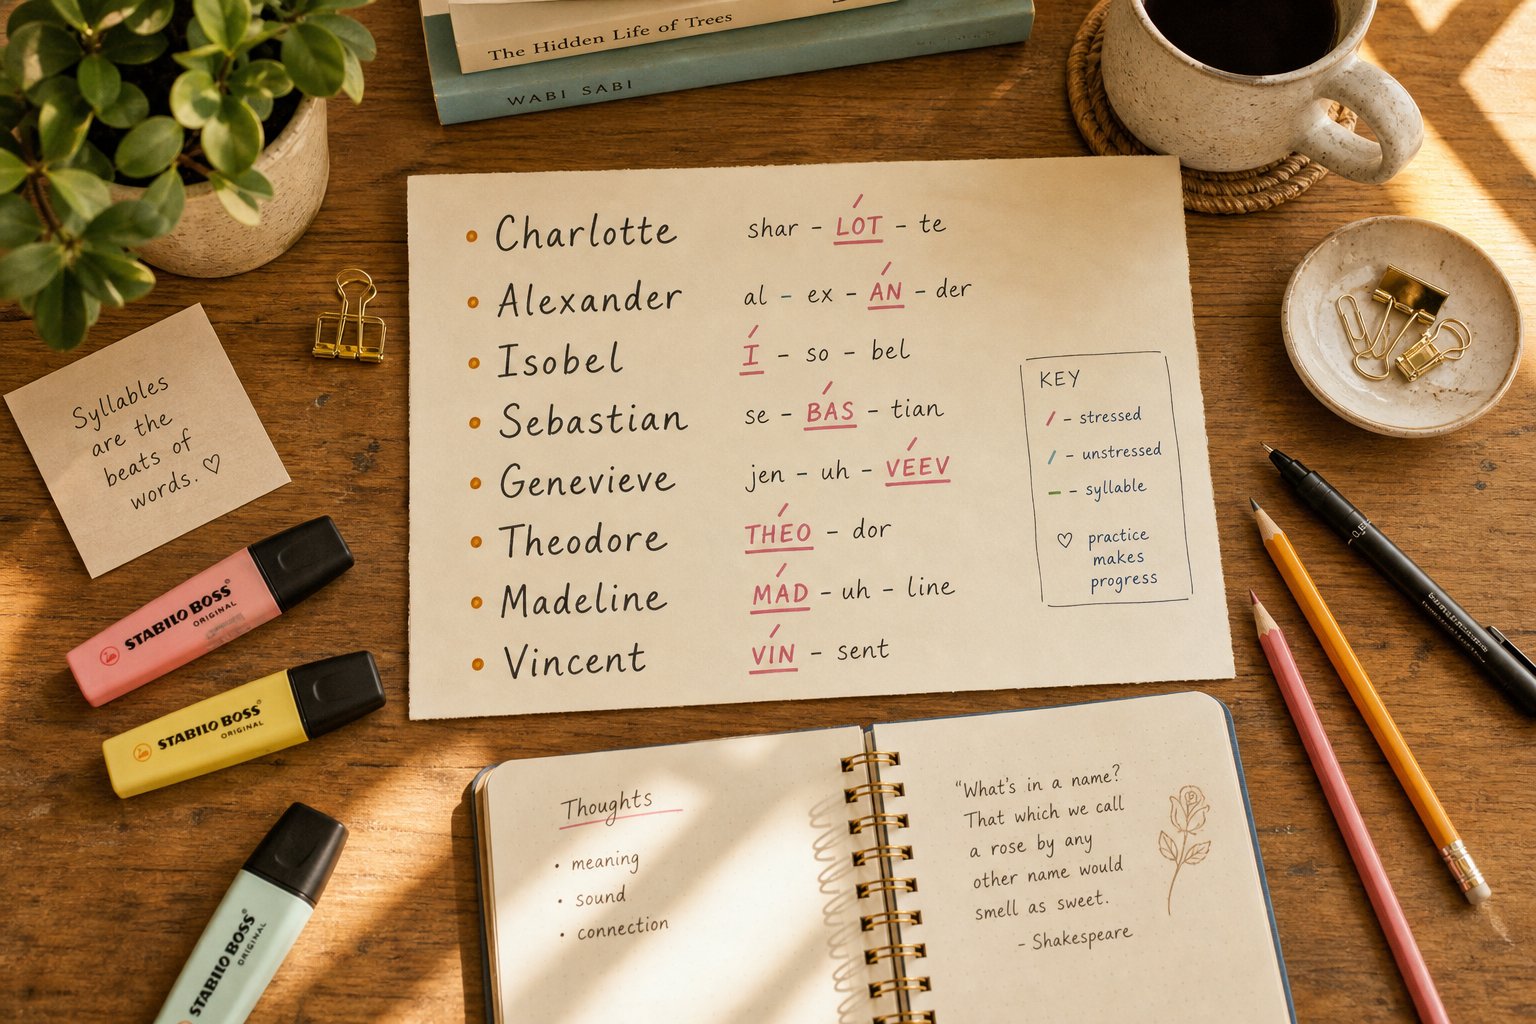 The Hidden Life of Trees
WABI SABI
Charlotte shar - LOT - te
Alexander al - ex - AN - der
Isobel I - so - bel
Sebastian se - BAS - tian
Genevieve jen - uh - VEEV
Theodore THEO - dor
Madeline MAD - uh - line
Vincent VIN - sent
KEY
/ - stressed
/ - unstressed
- - syllable
♡ practice
makes
progress
Syllables
are the
beats of
words. ♡
STABILO BOSS®
ORIGINAL
STABILO BOSS®
ORIGINAL
STABILO BOSS®
ORIGINAL
Thoughts
• meaning
• sound
• connection
"What's in a name?
That which we call
a rose by any
other name would
smell as sweet.
- Shakespeare